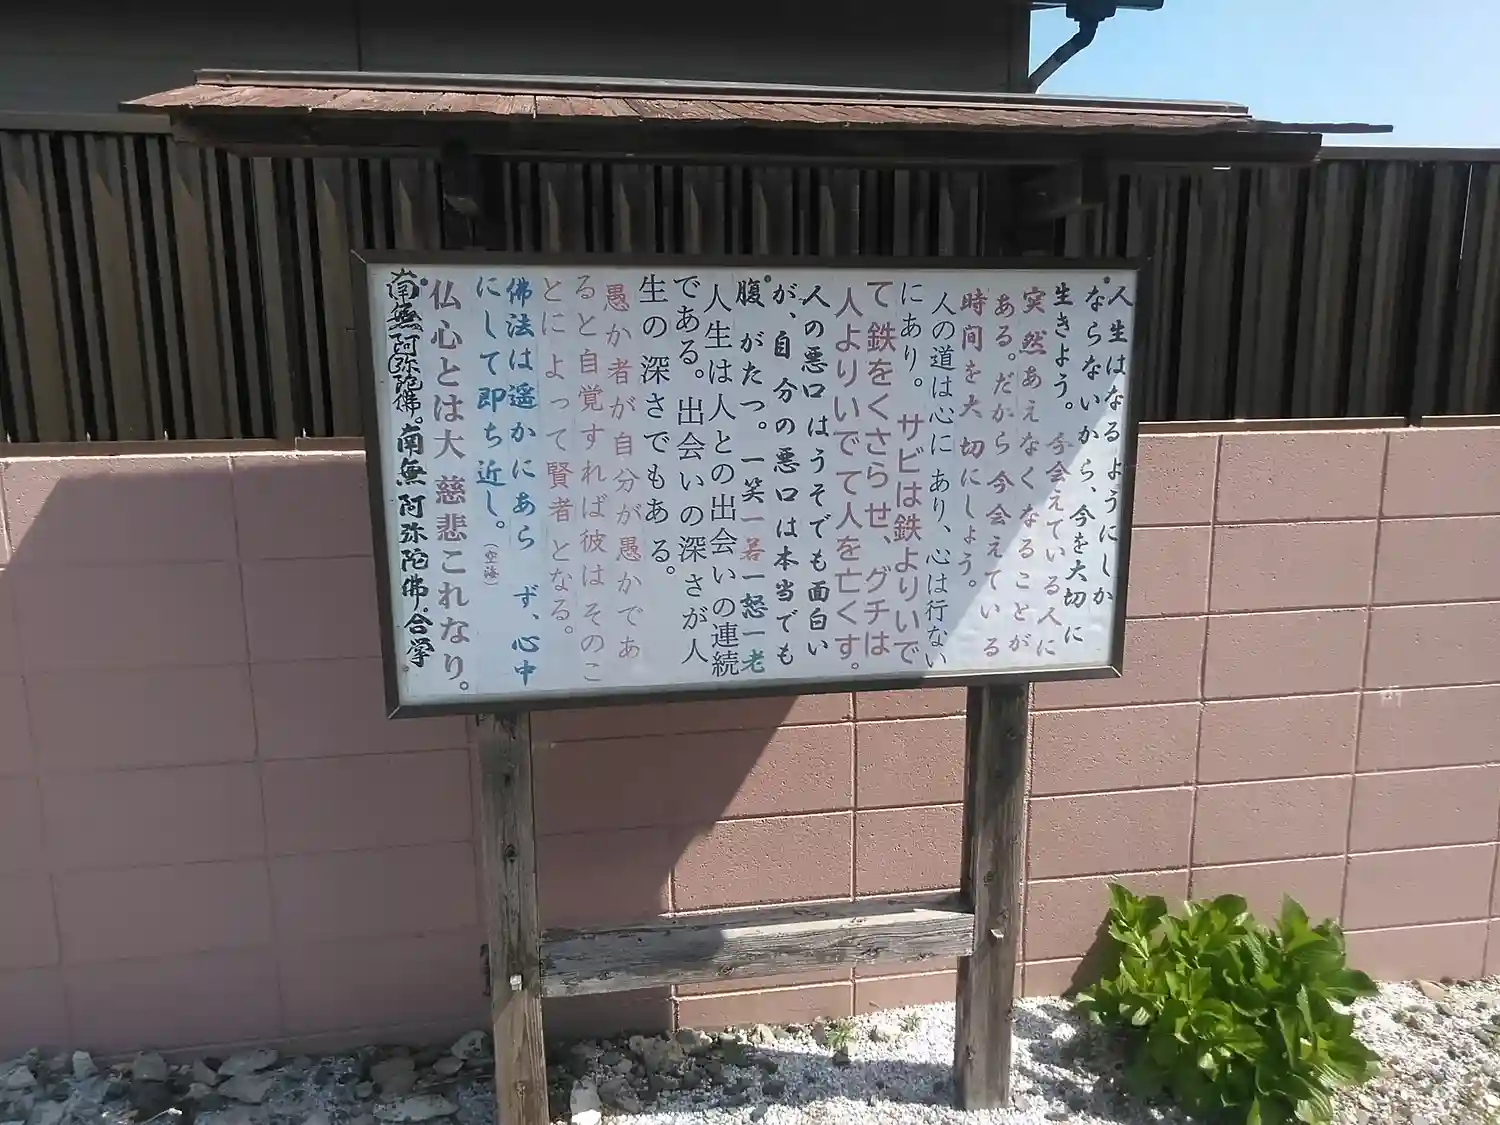 人生はなるようにしか
ならないから、今を大切に
生きよう。今会えている人に
突然あえなくなることが
ある。だから今会えている
時間を大切にしょう。
人の道は心にあり、心は行ない
にあり。サビは鉄よりいで
て鉄をくさらせ、グチは
人よりいでて人を亡くす。
人の悪口はうそでも面白い
が、自分の悪口は本当でも
腹がたつ。一笑一若一怒一老
人生は人との出会いの連続
である。出会いの深さが人
生の深さでもある。
愚か者が自分が愚かであ
ると自覚すれば彼はそのこ
とによって賢者となる。
佛法は遥かにあらず、心中
にして即ち近し。(空海)
仏心とは大慈悲これなり。
南無阿弥陀佛。南無阿弥陀佛。合学